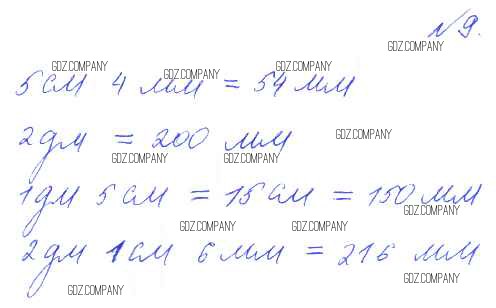 №9.
5 см 4 мм = 54 мм
2 дм = 200 мм
1 дм 5 см = 15 см = 150 мм
2 дм 1 см 6 мм = 216 мм
GDZ.COMPANY
GDZ.COMPANY
GDZ.COMPANY
GDZ.COMPANY
GDZ.COMPANY
GDZ.COMPANY
GDZ.COMPANY
GDZ.COMPANY
GDZ.COMPANY
GDZ.COMPANY
GDZ.COMPANY
GDZ.COMPANY